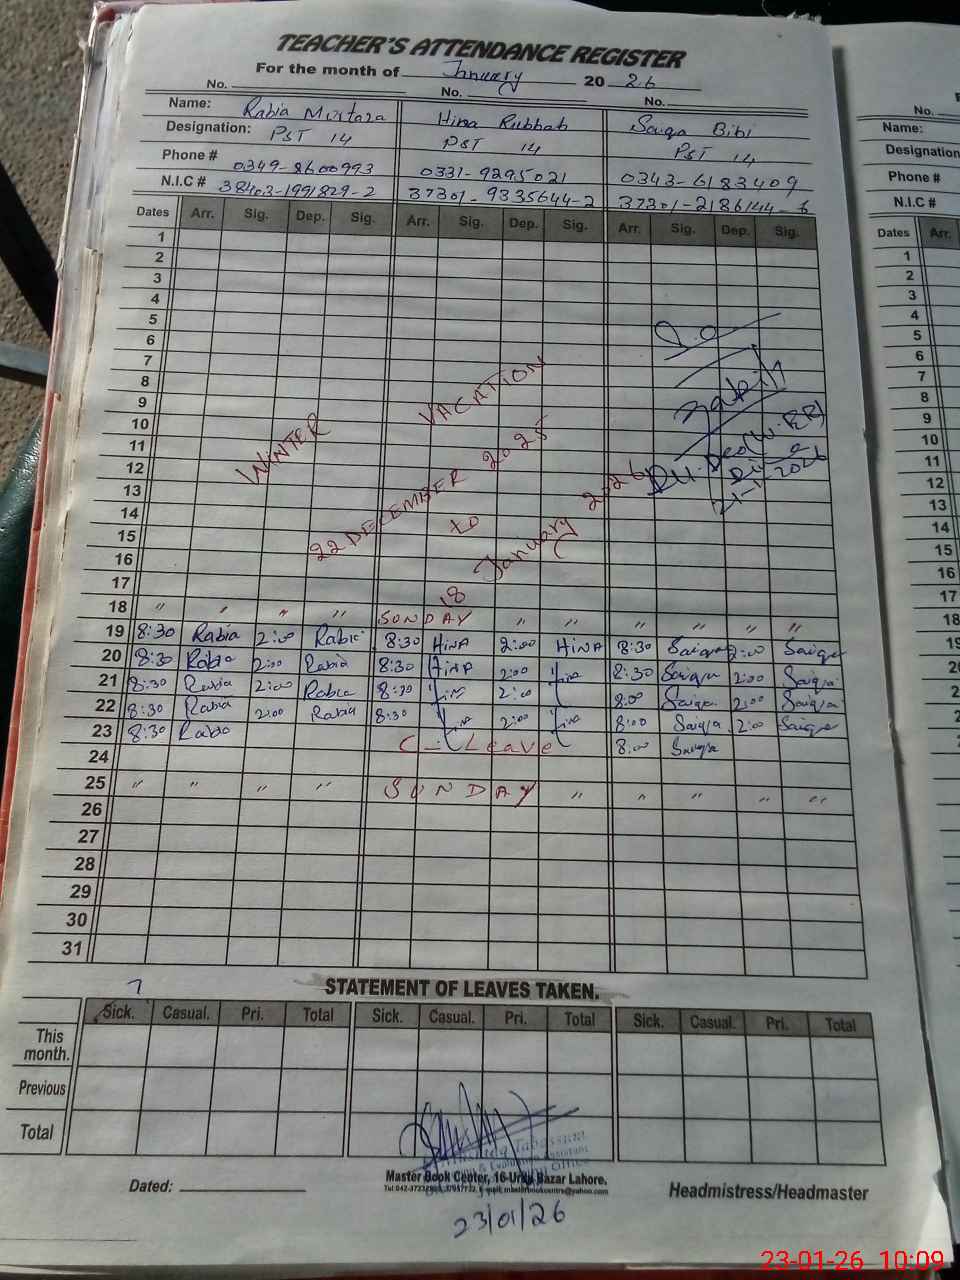 TEACHER'S ATTENDANCE REGISTER
For the month of January 20 26
No. No. No.
Name: Rabia Murtaza Hina Rubbab Saiqa Bibi
Designation: PST 14 PST 14 PST 14
Phone # 0349-8600993 0331-9295021 0343-6183409
N.I.C # 38403-1991829-2 37301-9335644-2 37301-2186144-
Dates Arr. Sig. Dep. Sig. Arr. Sig. Dep. Sig. Arr. Sig. Dep. Sig.
1
2
3
4
5
6
7
8
9
10
11
12
13
14
15
16
17
WINTER VACATION
22 DECEMBER 2025
to
18 January 2026
21-1-2026
18 " " " " SUNDAY " " " " " "
19 8:30 Rabia 2:00 Rabia 8:30 HINA 2:00 HINA 8:30 Saiqa 2:00 Saiqa
20 8:30 Rabia 2:00 Rabia 8:30 HINA 2:00 Hina 8:30 Saiqa 2:00 Saiqa
21 8:30 Rabia 2:00 Rabia 8:30 Hina 2:00 Hina 8:00 Saiqa 2:00 Saiqa
22 8:30 Rabia 2:00 Rabia 8:30 Hina 2:00 Hina 8:00 Saiqa 2:00 Saiqa
23 8:30 Rabia C-Leave 8:00 Saiqa
24
25 " " " " SUNDAY " " " " "
26
27
28
29
30
31
STATEMENT OF LEAVES TAKEN.
Sick. Casual. Pri. Total Sick. Casual. Pri. Total Sick. Casual. Pri. Total
This month.
Previous
Total
Master Book Center, 16-Urdu Bazar Lahore.
Dated: Headmistress/Headmaster
23/01/26
No.
Name:
Designation
Phone #
N.I.C #
Dates Arr.
1
2
3
4
5
6
7
8
9
10
11
12
13
14
15
16
17
18
19
23-01-26 10:09